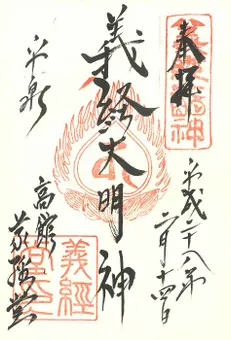 奉拝
平成二十八年
六月十四日
義経大明神
平泉
高館
義経堂
義經